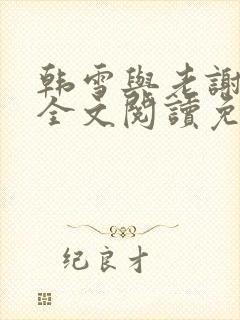 韩雪與老謝
全文閱讀免
纪良才